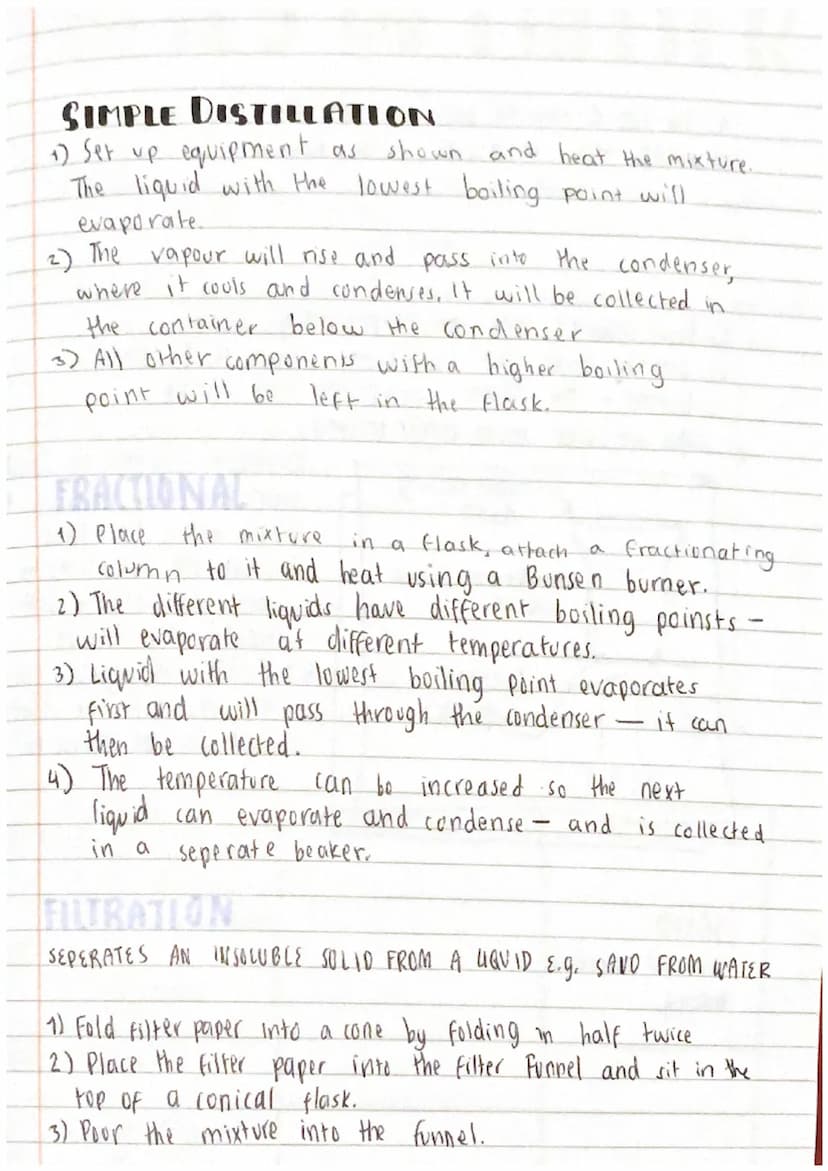 SIMPLE DISTILLATION
1) Set up equipment as shown and heat the mixture.
The liquid with the lowest boiling point will
evaporate.
2) The vapour will rise and pass into the condenser,
where it cools and condenses. It will be collected in
the container below the condenser
3) All other components with a higher boiling
point will be left in the flask.
FRACTIONAL
1) Place the mixture in a flask, attach a fractionating
column to it and heat using a Bunsen burner.
2) The different liquids have different boiling poinsts —
will evaporate at different temperatures.
3) Liquid with the lowest boiling point evaporates
first and will pass through the condenser — it can
then be collected.
4) The temperature can be increased so the next
liquid can evaporate and condense — and is collected
in a seperate beaker.
FILTRATION
SEPERATES AN INSOLUBLE SOLID FROM A LIQUID E.g. SAND FROM WATER
1) Fold filter paper into a cone by folding in half twice
2) Place the filter paper into the filter funnel and sit in the
top of a conical flask.
3) Poor the mixture into the funnel.